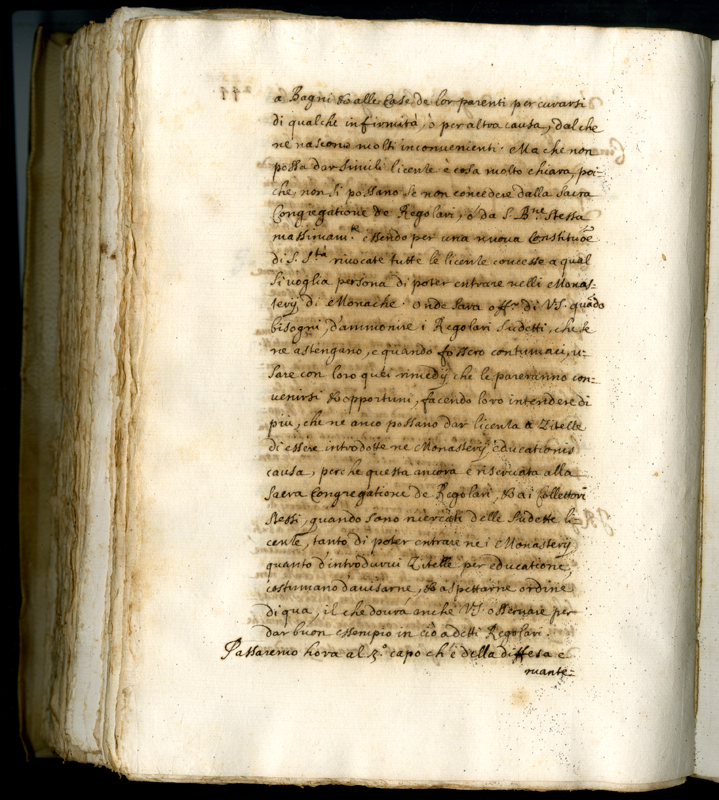 a Bagni ò alle Case de lor parenti per curarsi
di qualche infirmità, ò per altra causa, dal che
ne nascono molti inconvenienti. Ma che non
possa dar simili licenze è cosa molto chiara, poi-
che non si possano se non concedere dalla Sacra
Congregatione de Regolari, ò da S. B.ne stessa
massimam.te essendo per una nuova Constitut.ne
di S. S.tà rivocate tutte le licenze concesse a qual
si voglia persona di poter entrare nelli Monas-
terij di Monache. Onde sarà off.o di VS. quãdo
bisogni, d'ammonire i Regolari sudetti, che se
ne astengano, e quando fossero contumaci, u-
sare con loro quei rimedij che le pareranno con-
venirsi et opportuni, facendo loro intendere di
più, che ne anco possano dar licenza a Zitelle
di essere introdotte ne Monasterij educationis
causa, perche questa ancora è riservata alla
Sacra Congregatione de Regolari, et a i Collettori
stessi, quando sono ricercati delle sudette li
cenze, tanto di poter entrare ne i Monasterij
quanto d'introdurvi Zitelle per educatione,
costumano d'avisarne, et aspettarne ordine
di qua, il che dovrà anche VS. osservare per
dar buon essempio in ciò a detti Regolari.
Passaremo hora al 3.o capo ch'è della diffesa e
mante-